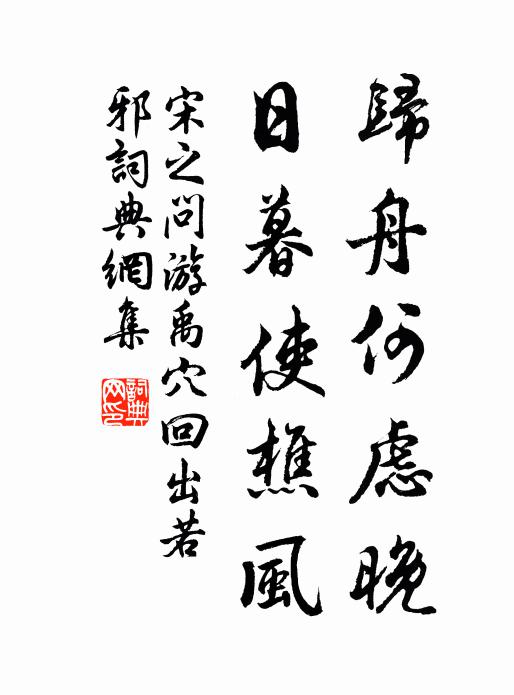 歸舟何慮晚
日暮使樵風
宋之问游禹穴回出若
邪詞典網集
詞典
网印